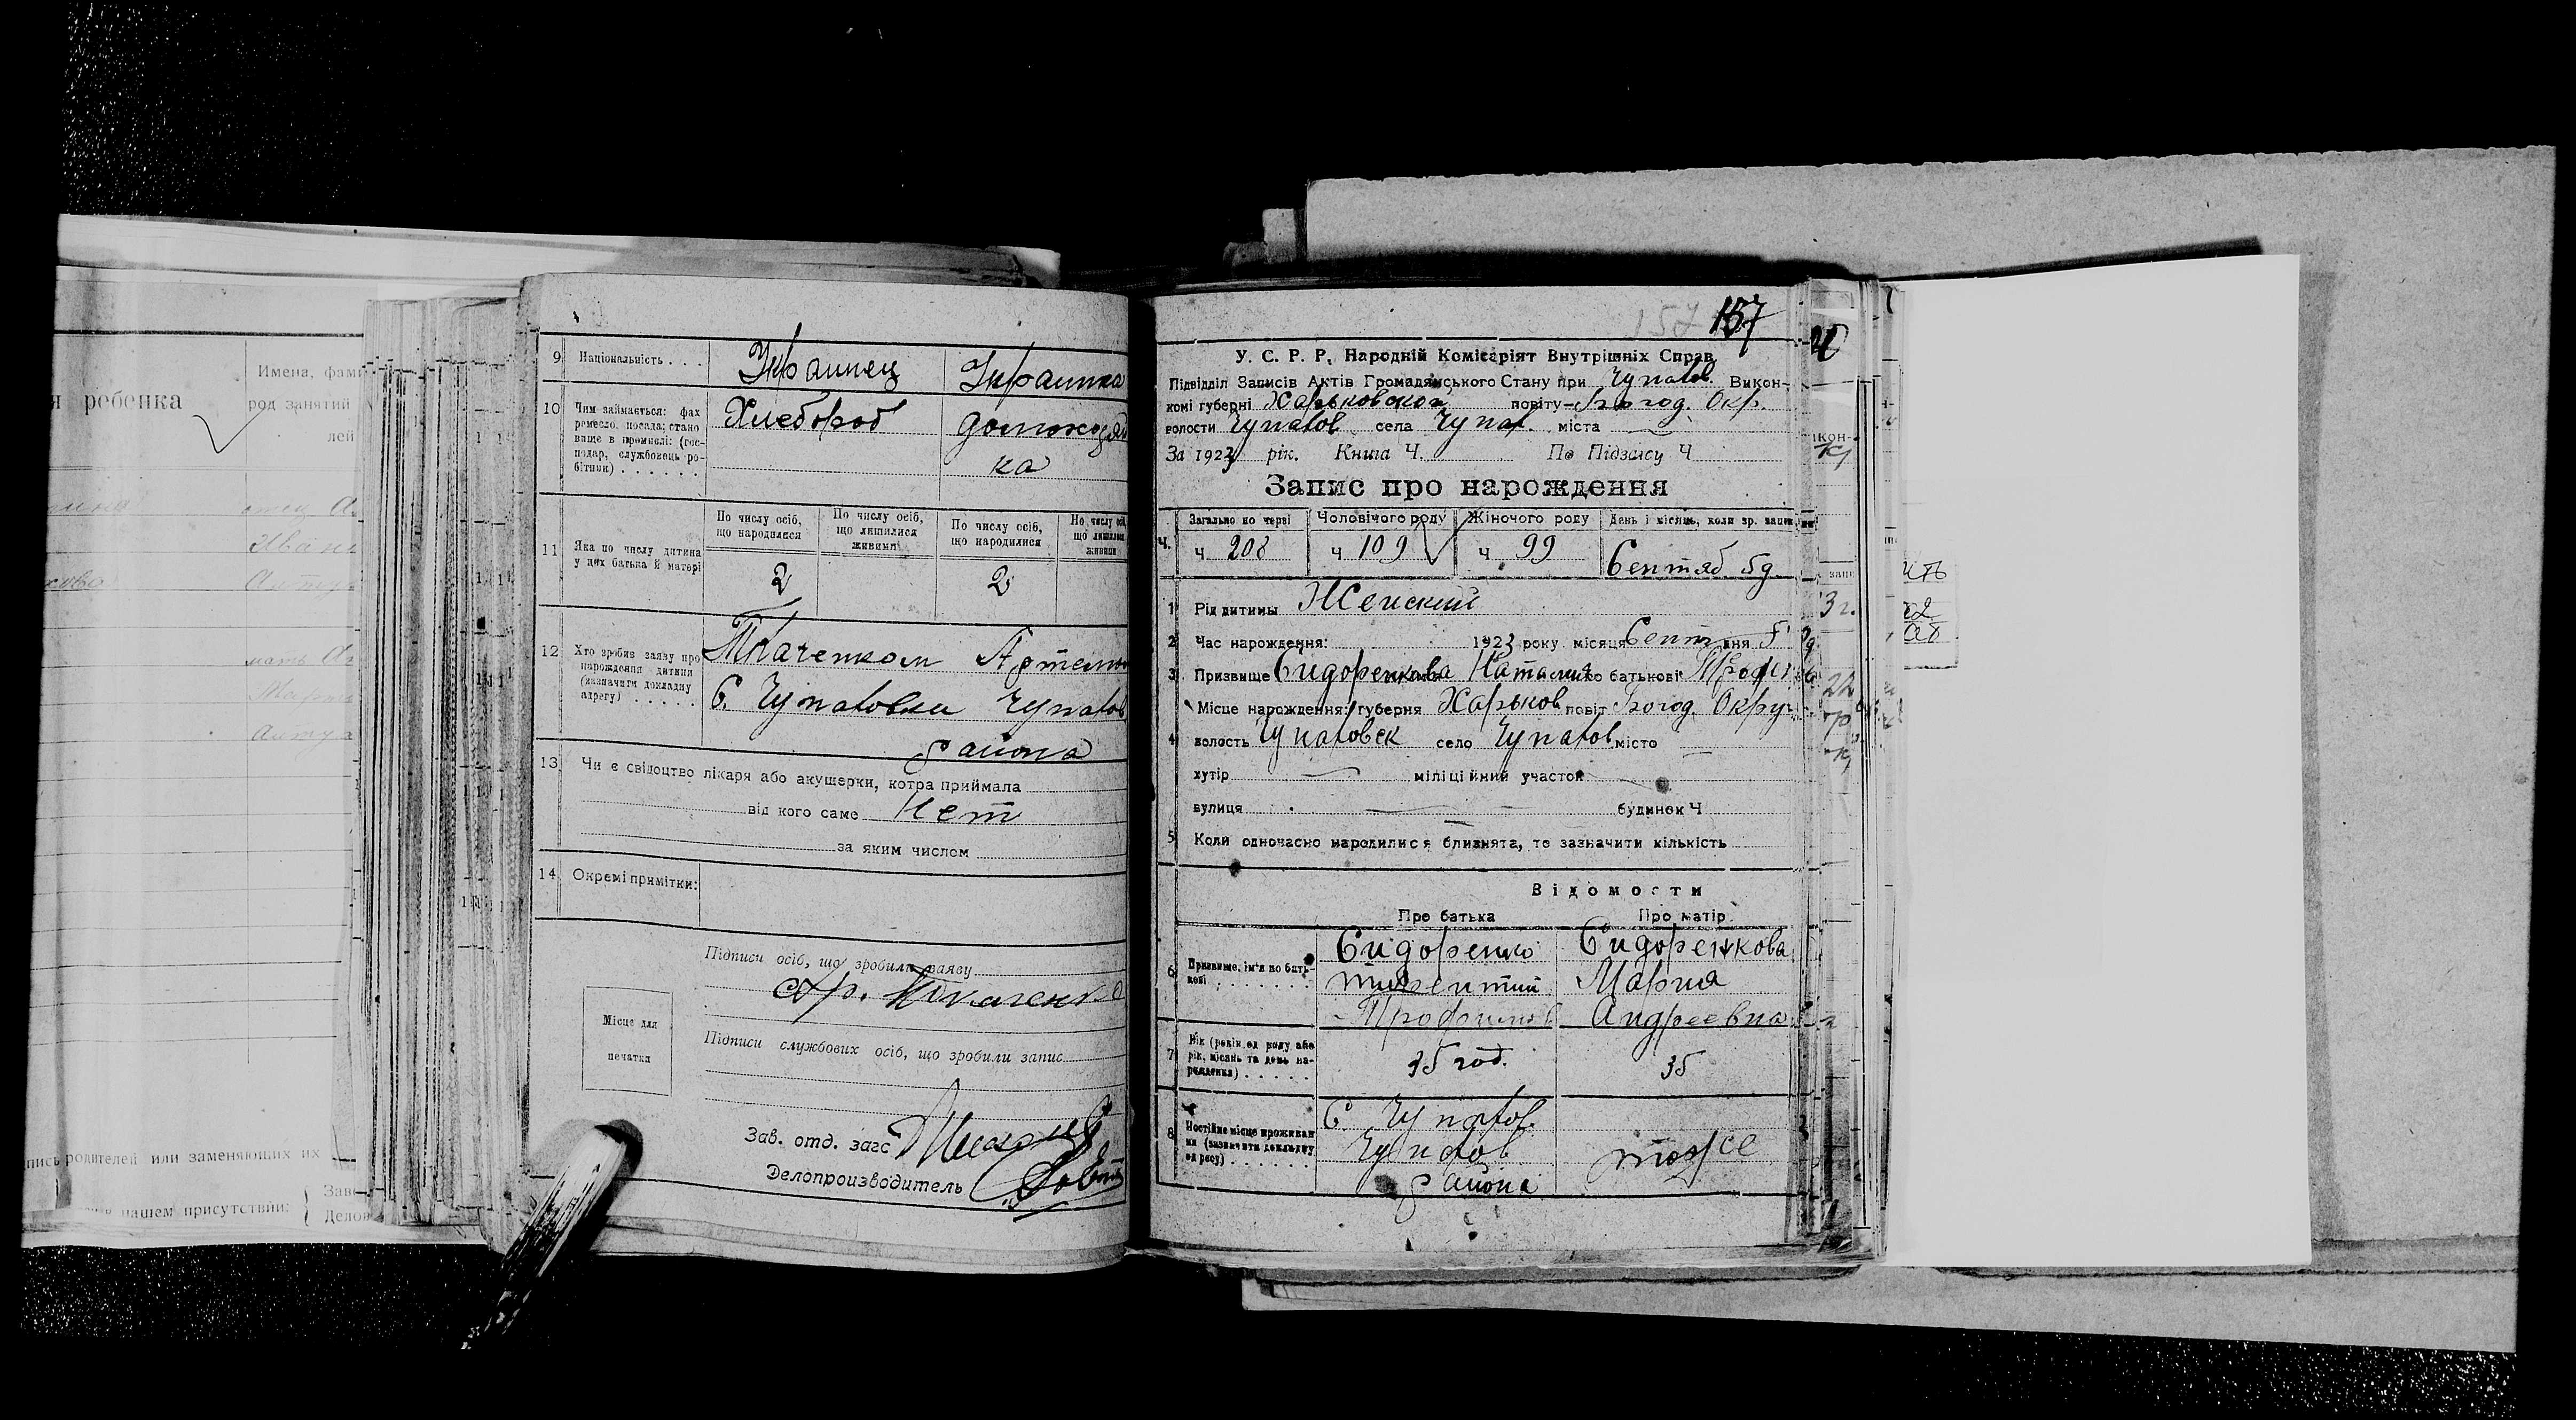 я ребенка
Имена, фам
род занятий
лей
Ивани
мать
пись родителей или заменяющих их
Заве
в нашем присутствии:
Делов
9 Національність . . . Украинец Украинка
10 Чим займається: фах
ремесло, посада; стано
вище в промислі: (гос-
подар, службовець ро-
бітник) . . . . . .
Хлебороб домохозяй
ка
11 Яка по числу дитина
у цих батька й матері
По числу осіб,
що народилися
По числу осіб,
що лишилися
живими
По числу осіб,
що народилися
По числу осіб,
що лишилися
живими
2 2
12 Хто зробив заяву про
нарождення дитини
(зазначити докладну
адресу) . . . . .
Ткаченком Артемом
С. Чупаховки Чупахов
района
13 Чи є свідоцтво лікаря або акушерки, котра приймала
від кого саме Нет
за яким числом
14 Окремі примітки:
Підписи осіб, що зробили заяву
Ар. Ткаченко
Місце для
печатки
Підписи службових осіб, що зробили запис
Зав. отд. загс
Делопроизводитель
157 157
У. С. Р. Р. Народній Комісаріят Внутрішніх Справ
Підвідділ Записів Актів Громадянського Стану при Чупахов. Викон-
комі губерні Харьковской повіту Богод. Окр.
волости Чупахов села Чупах. міста
За 1923 рік. Книга Ч. По Підзагсу Ч
Запис про нарождення
Загально по черзі Чоловічого роду Жіночого роду День і місяць, коли зр. запис
ч 208 ч 109 ч 99 Сентяб 5д
1 Рід дитини Женский
2 Час нарождення: 1923 року місяця Сент дня 5
3 Призвище Сидоренкова Наталия по батькові
4 Місце нарождення: губерня Харьков повіт Богод. Округ
волость Чупаховск село Чупахов місто
хутір міліційний участок
вулиця будинок Ч
5 Коли одночасно народилися близнята, то зазначити кількість
Відомости
Про батька Про матір
6 Призвище, ім'я по бать-
кові . . . . . . .
Сидоренко Сидоренкова
Мария
Трофимов Андреевна
7 Вік (років од роду або
рік, місяць та день на-
рождення) . . . . . .
35 год. 35
8 Постійне місце проживан
ня (зазначити докладну
адресу) . . . . . . .
С. Чупахов.
Чупахов тоже
района